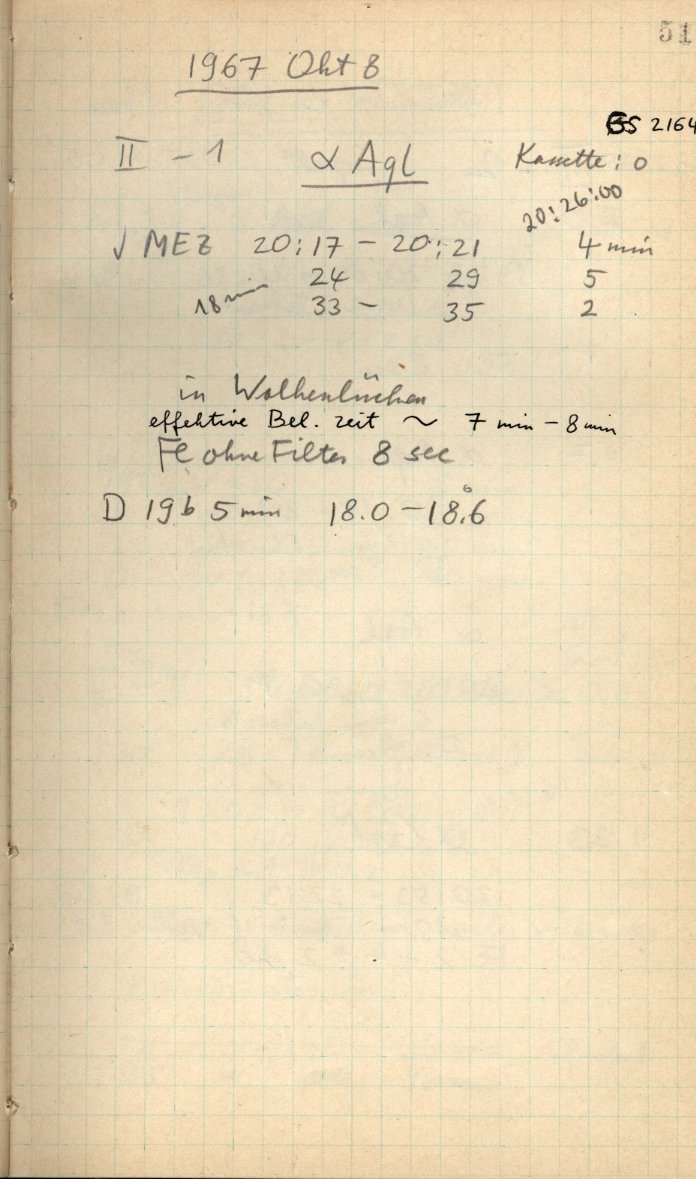 51
1967 Okt 8
GS 2164
II - 1 α Aql Kassette: 0
20:26:00
√ MEZ 20:17 - 20:21 4 min
24 29 5
18 min 33 - 35 2
in Wolkenlücken
effektive Bel. zeit ~ 7 min - 8 min
Fe ohne Filter 8 sec
D 19b 5 min 18.0 - 18.6